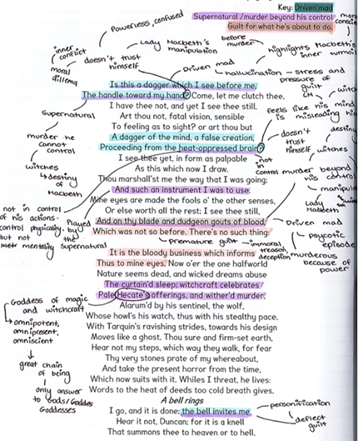 Key: Driven mad
Supernatural /murder beyond his control
Guilt for what he's about to do.
Powerlessness, confused
inner conflict
moral dilemma
doesn't trust himself
Lady Macbeth's manipulation
before murder
Driven mad
hallucination - stress and pressure of guilt
highlights Macbeth's inner turmoil
Is this a dagger which I see before me,
The handle toward my hand? Come, let me clutch thee,
I have thee not, and yet I see thee still.
Art thou not, fatal vision, sensible
To feeling as to sight? or art thou but
A dagger of the mind, a false creation,
Proceeding from the heat-oppressed brain?
I see thee yet, in form as palpable
As this which now I draw.
Thou marshall'st me the way that I was going;
And such an instrument I was to use.
Mine eyes are made the fools o' the other senses,
Or else worth all the rest; I see thee still,
And on thy blade and dudgeon gouts of blood,
Which was not so before. There's no such thing:
It is the bloody business which informs
Thus to mine eyes. Now o'er the one halfworld
Nature seems dead, and wicked dreams abuse
The curtain'd sleep; witchcraft celebrates
Pale Hecate's offerings, and wither'd murder,
Alarum'd by his sentinel, the wolf,
Whose howl's his watch, thus with his stealthy pace.
With Tarquin's ravishing strides, towards his design
Moves like a ghost. Thou sure and firm-set earth,
Hear not my steps, which way they walk, for fear
Thy very stones prate of my whereabout,
And take the present horror from the time,
Which now suits with it. Whiles I threat, he lives:
Words to the heat of deeds too cold breath gives.
A bell rings
I go, and it is done; the bell invites me.
Hear it not, Duncan; for it is a knell
That summons thee to heaven or to hell.
Supernatural
murder he cannot control
witches
destiny of Macbeth
not in control of his actions
feels like his mind is misleading him
doesn't trust himself
witches
not in control
murder beyond his control
Lady Macbeth
Driven mad
psychotic episode
murderous because of power
premature guilt
immoral
treason, deception
Goddess of magic and witchcraft
omnipotent, omnipresent, omniscient
great chain of being
only answer to Gods/Goddesses
personification
deflect guilt